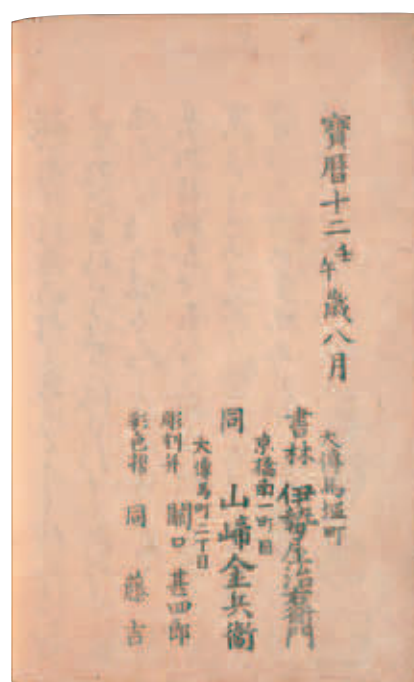 寶暦十二壬午歳八月
大傳馬塩町
書林 伊勢屋治右衛門
京橋南一町目
同 山崎金兵衛
大傳馬町二丁目
彫刻并 関口甚四郎
彩色摺 同 藤吉